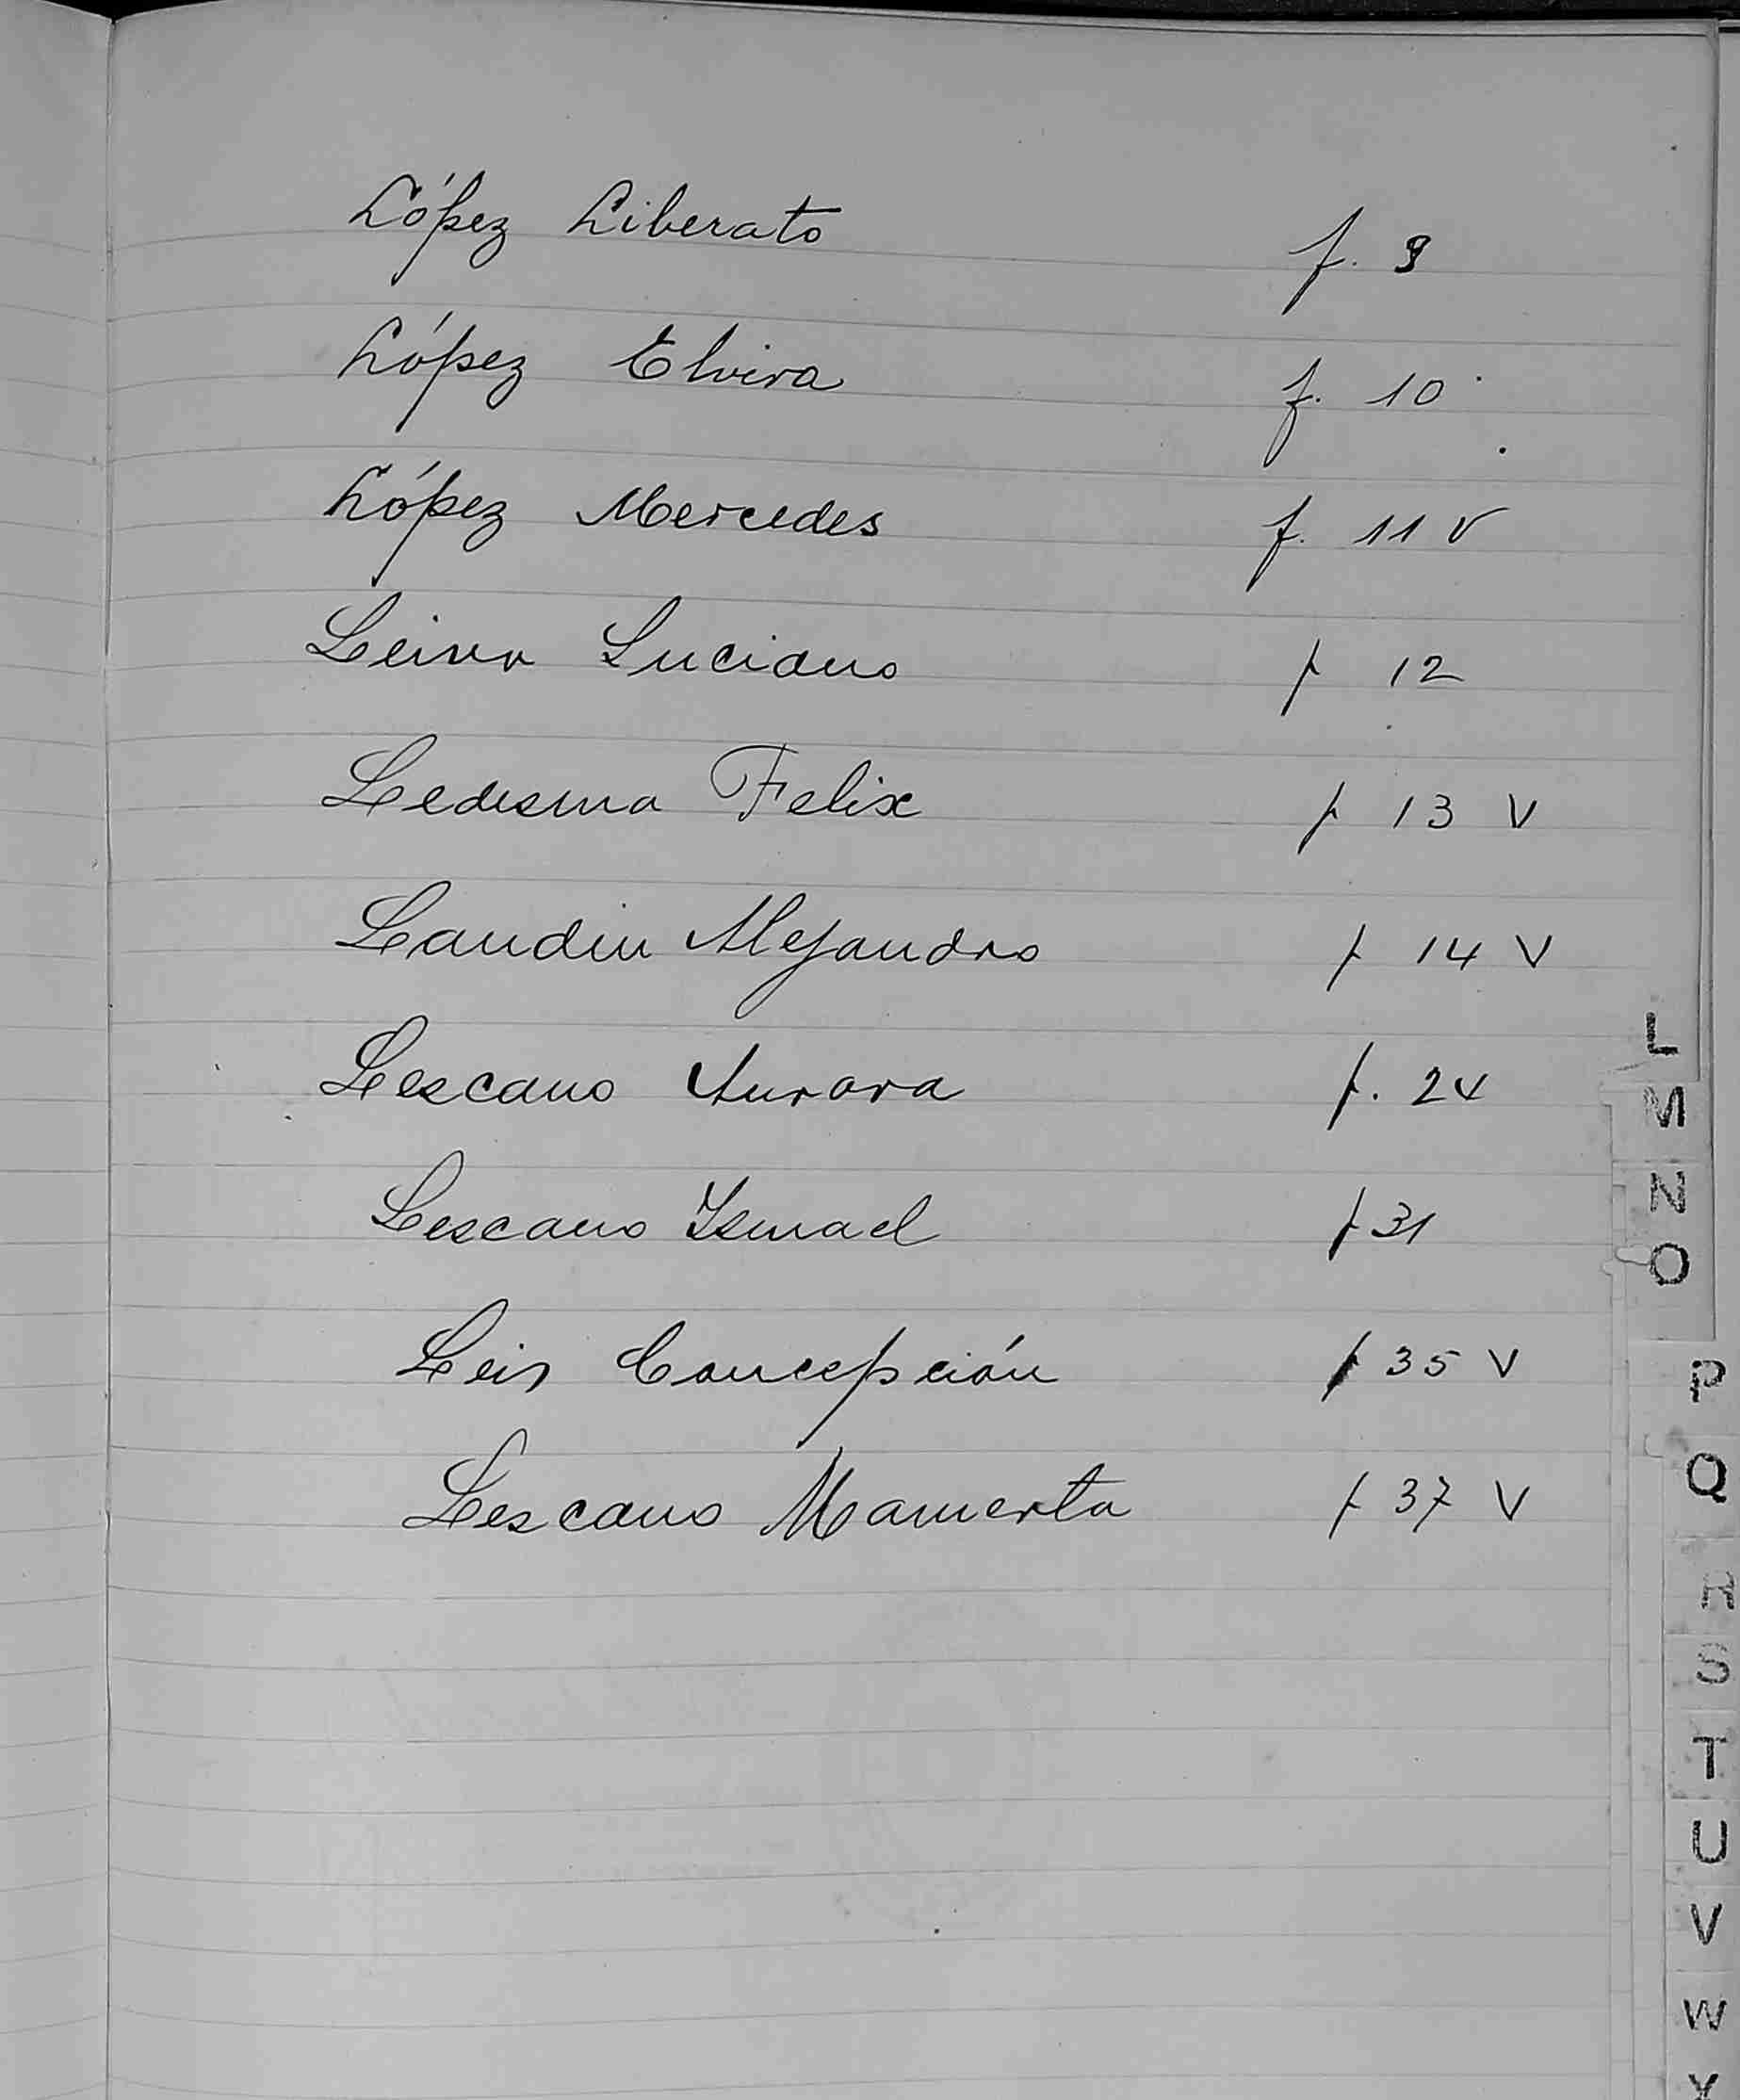 López Liberato f. 9
López Elvira f. 10
López Mercedes f. 11 v
Leiva Luciano f 12
Ledesma Felix f 13 V
Landin Alejandro f 14 V
Lescano Aurora f. 24
Lescano Ismael f 31
Leis Concepción f 35 V
Lescano Mamerta f 37 V
L
M
N
O
P
Q
R
S
T
U
V
W
X